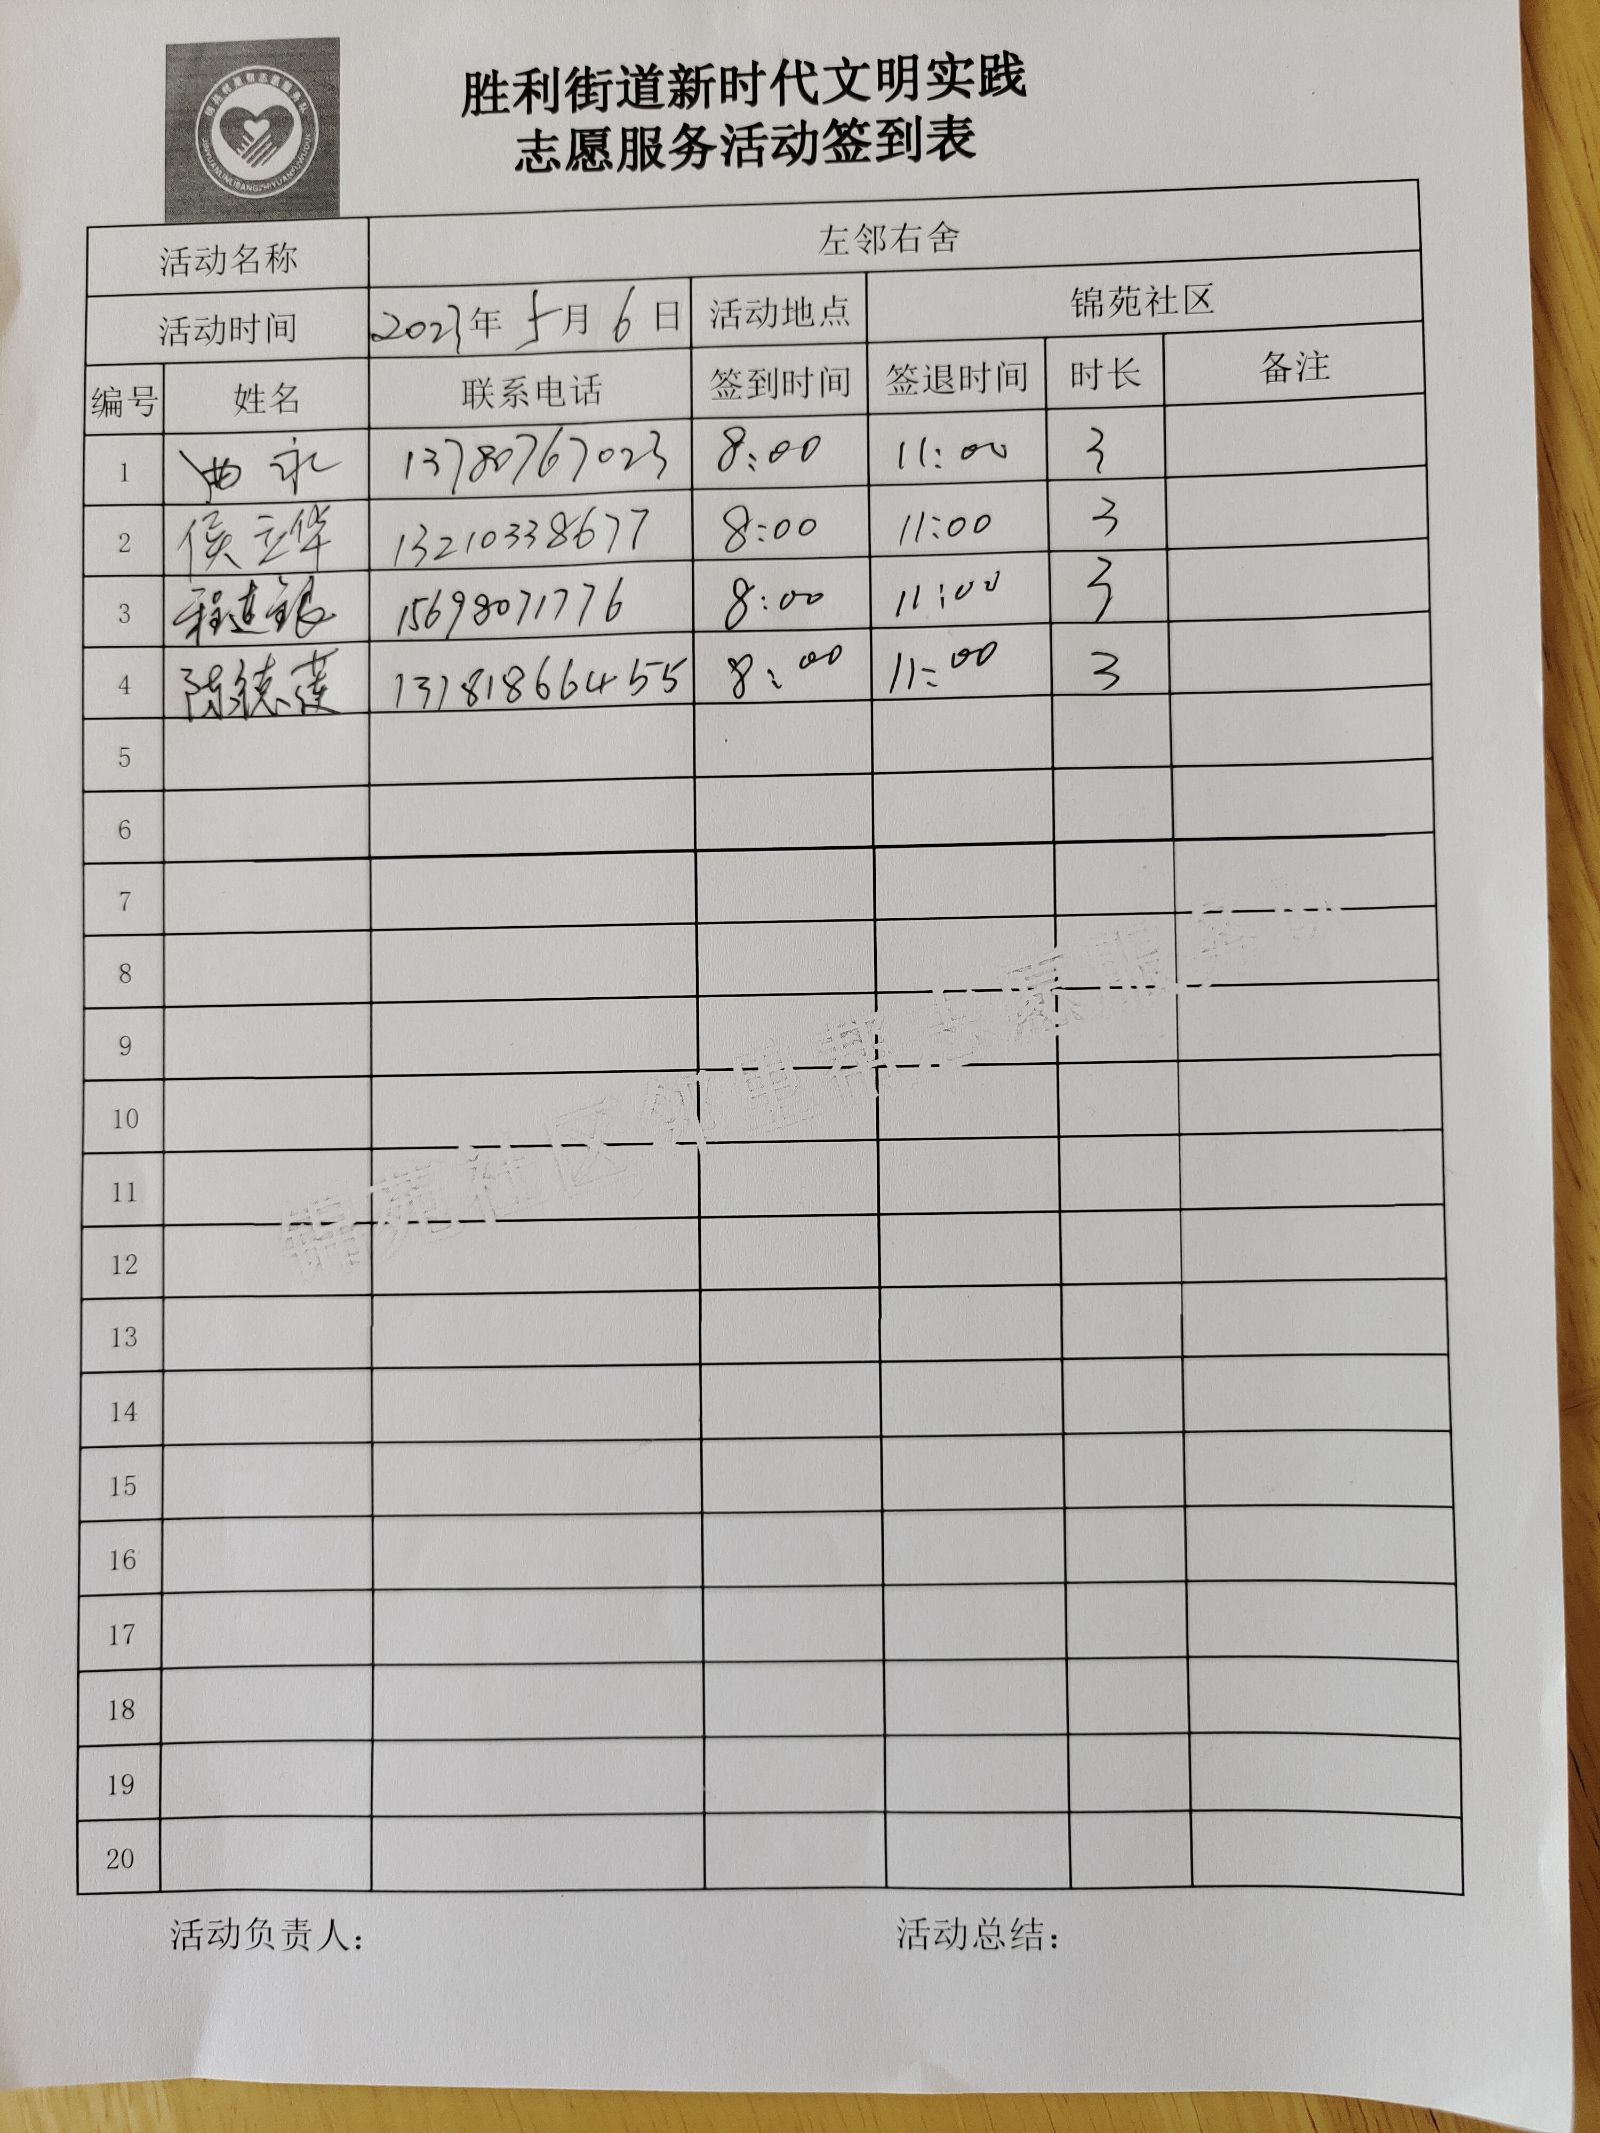 胜利街道新时代文明实践
志愿服务活动签到表
活动名称 左邻右舍
活动时间 2023年 5月 6日 活动地点 锦苑社区
编号 姓名 联系电话 签到时间 签退时间 时长 备注
1 曲永 13780767023 8:00 11:00 3
2 侯立华 13210338677 8:00 11:00 3
3 程连银 15698071776 8:00 11:00 3
4 陈德莲 8:00 11:00 3
5
6
7
8
9
10
11
12
13
14
15
16
17
18
19
20
锦苑社区邻里帮志愿服务队
活动负责人: 活动总结: